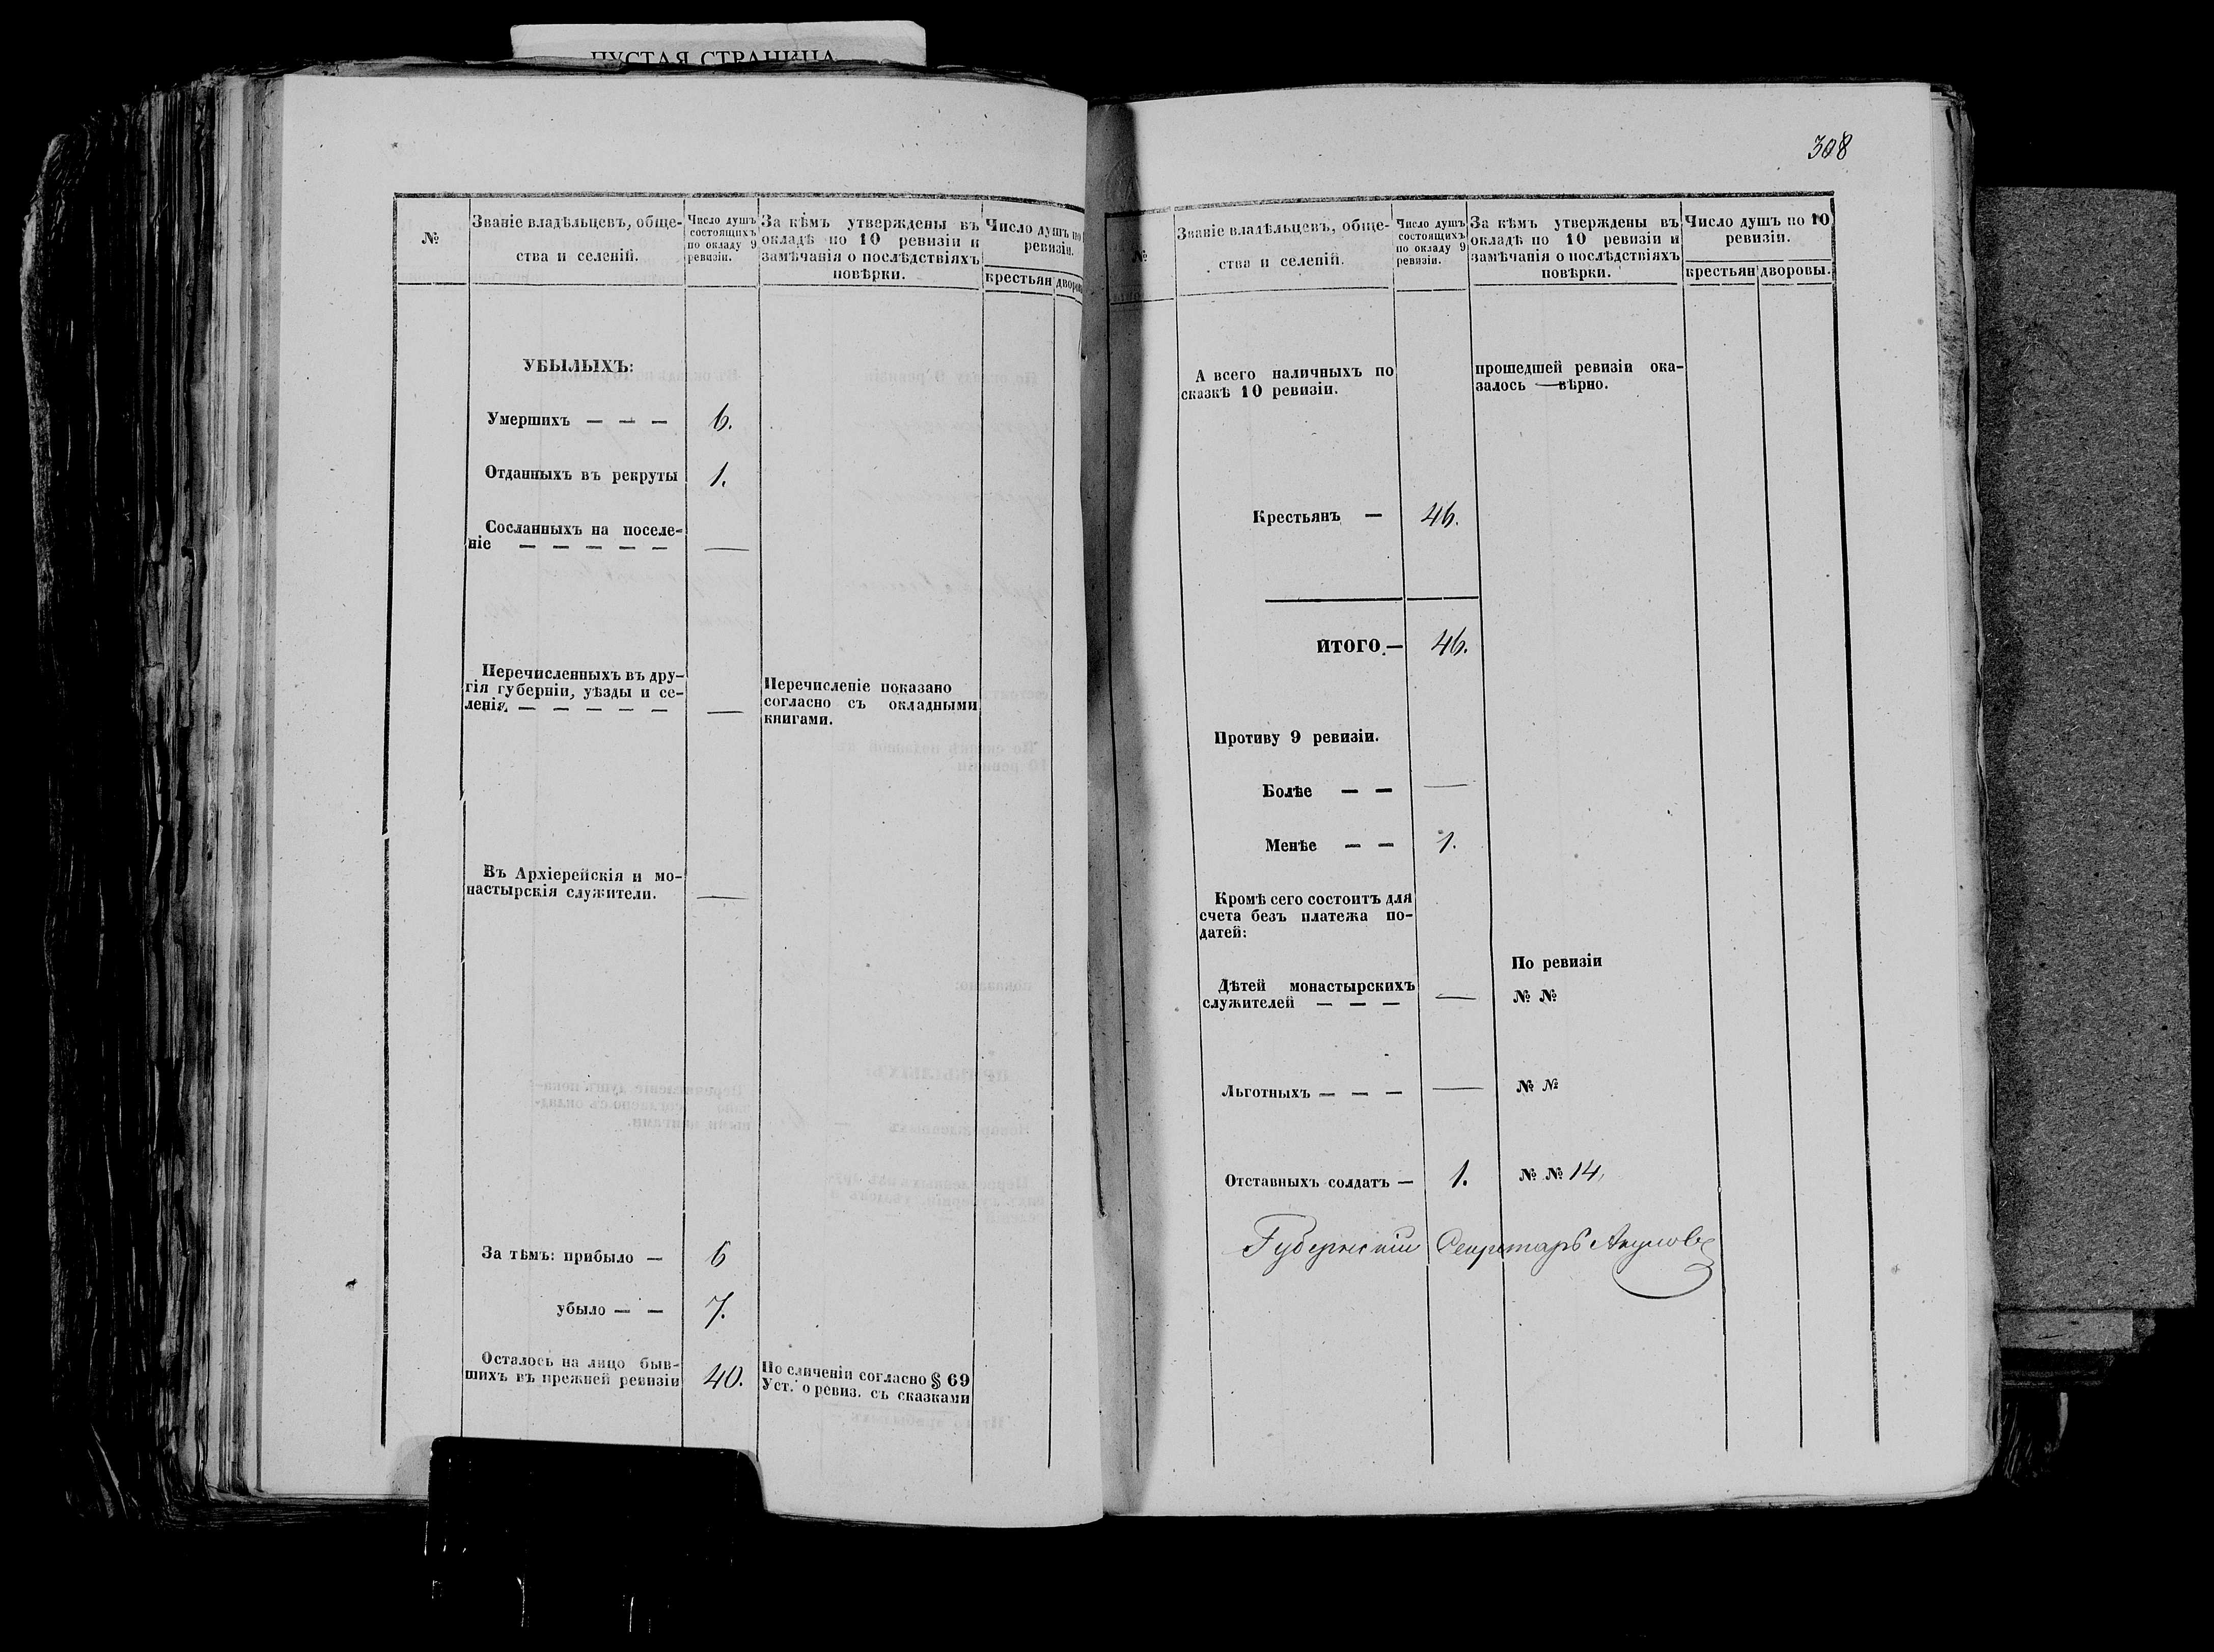 ПУСТАЯ СТРАНИЦА
№
Званіе владѣльцевъ, обще-
ства и селеній.
Число душъ
состоящихъ
по окладу 9
ревизіи.
За кѣмъ утверждены въ
окладѣ по 10 ревизіи и
замѣчанія о послѣдствіяхъ
повѣрки.
Число душъ по
ревизіи.
крестьян
дворовы
УБЫЛЫХЪ:
Умершихъ — — — 6.
Отданныхъ въ рекруты 1.
Сосланныхъ на поселе-
ніе — — — — — —
Перечисленныхъ въ дру-
гія губерніи, уѣзды и се-
ленія, — — — — — —
Перечисленіе показано
согласно съ окладными
книгами.
Въ Архіерейскія и мо-
настырскія служители. —
За тѣмъ: прибыло — 6
убыло — — 7.
Осталось на лицо быв-
шихъ въ прежней ревизіи 40.
По сличеніи согласно § 69
Уст. о ревиз. съ сказками
308
№
Званіе владѣльцевъ, обще-
ства и селеній.
Число душъ
состоящихъ
по окладу 9
ревизіи.
За кѣмъ утверждены въ
окладѣ по 10 ревизіи и
замѣчанія о послѣдствіяхъ
повѣрки.
Число душъ по 10
ревизіи.
крестьян
дворовы.
А всего наличныхъ по
сказкѣ 10 ревизіи.
прошедшей ревизіи ока-
залось —вѣрно.
Крестьянъ — 46.
ИТОГО.— 46.
Противу 9 ревизіи.
Болѣе — — —
Менѣе — — 1.
Кромѣ сего состоитъ для
счета безъ платежа по-
датей:
По ревизіи
Дѣтей монастырскихъ
служителей — — — — № №
Льготныхъ — — — — № №
Отставныхъ солдатъ — 1. № № 14,
Губернскій Секретарь Акуловъ